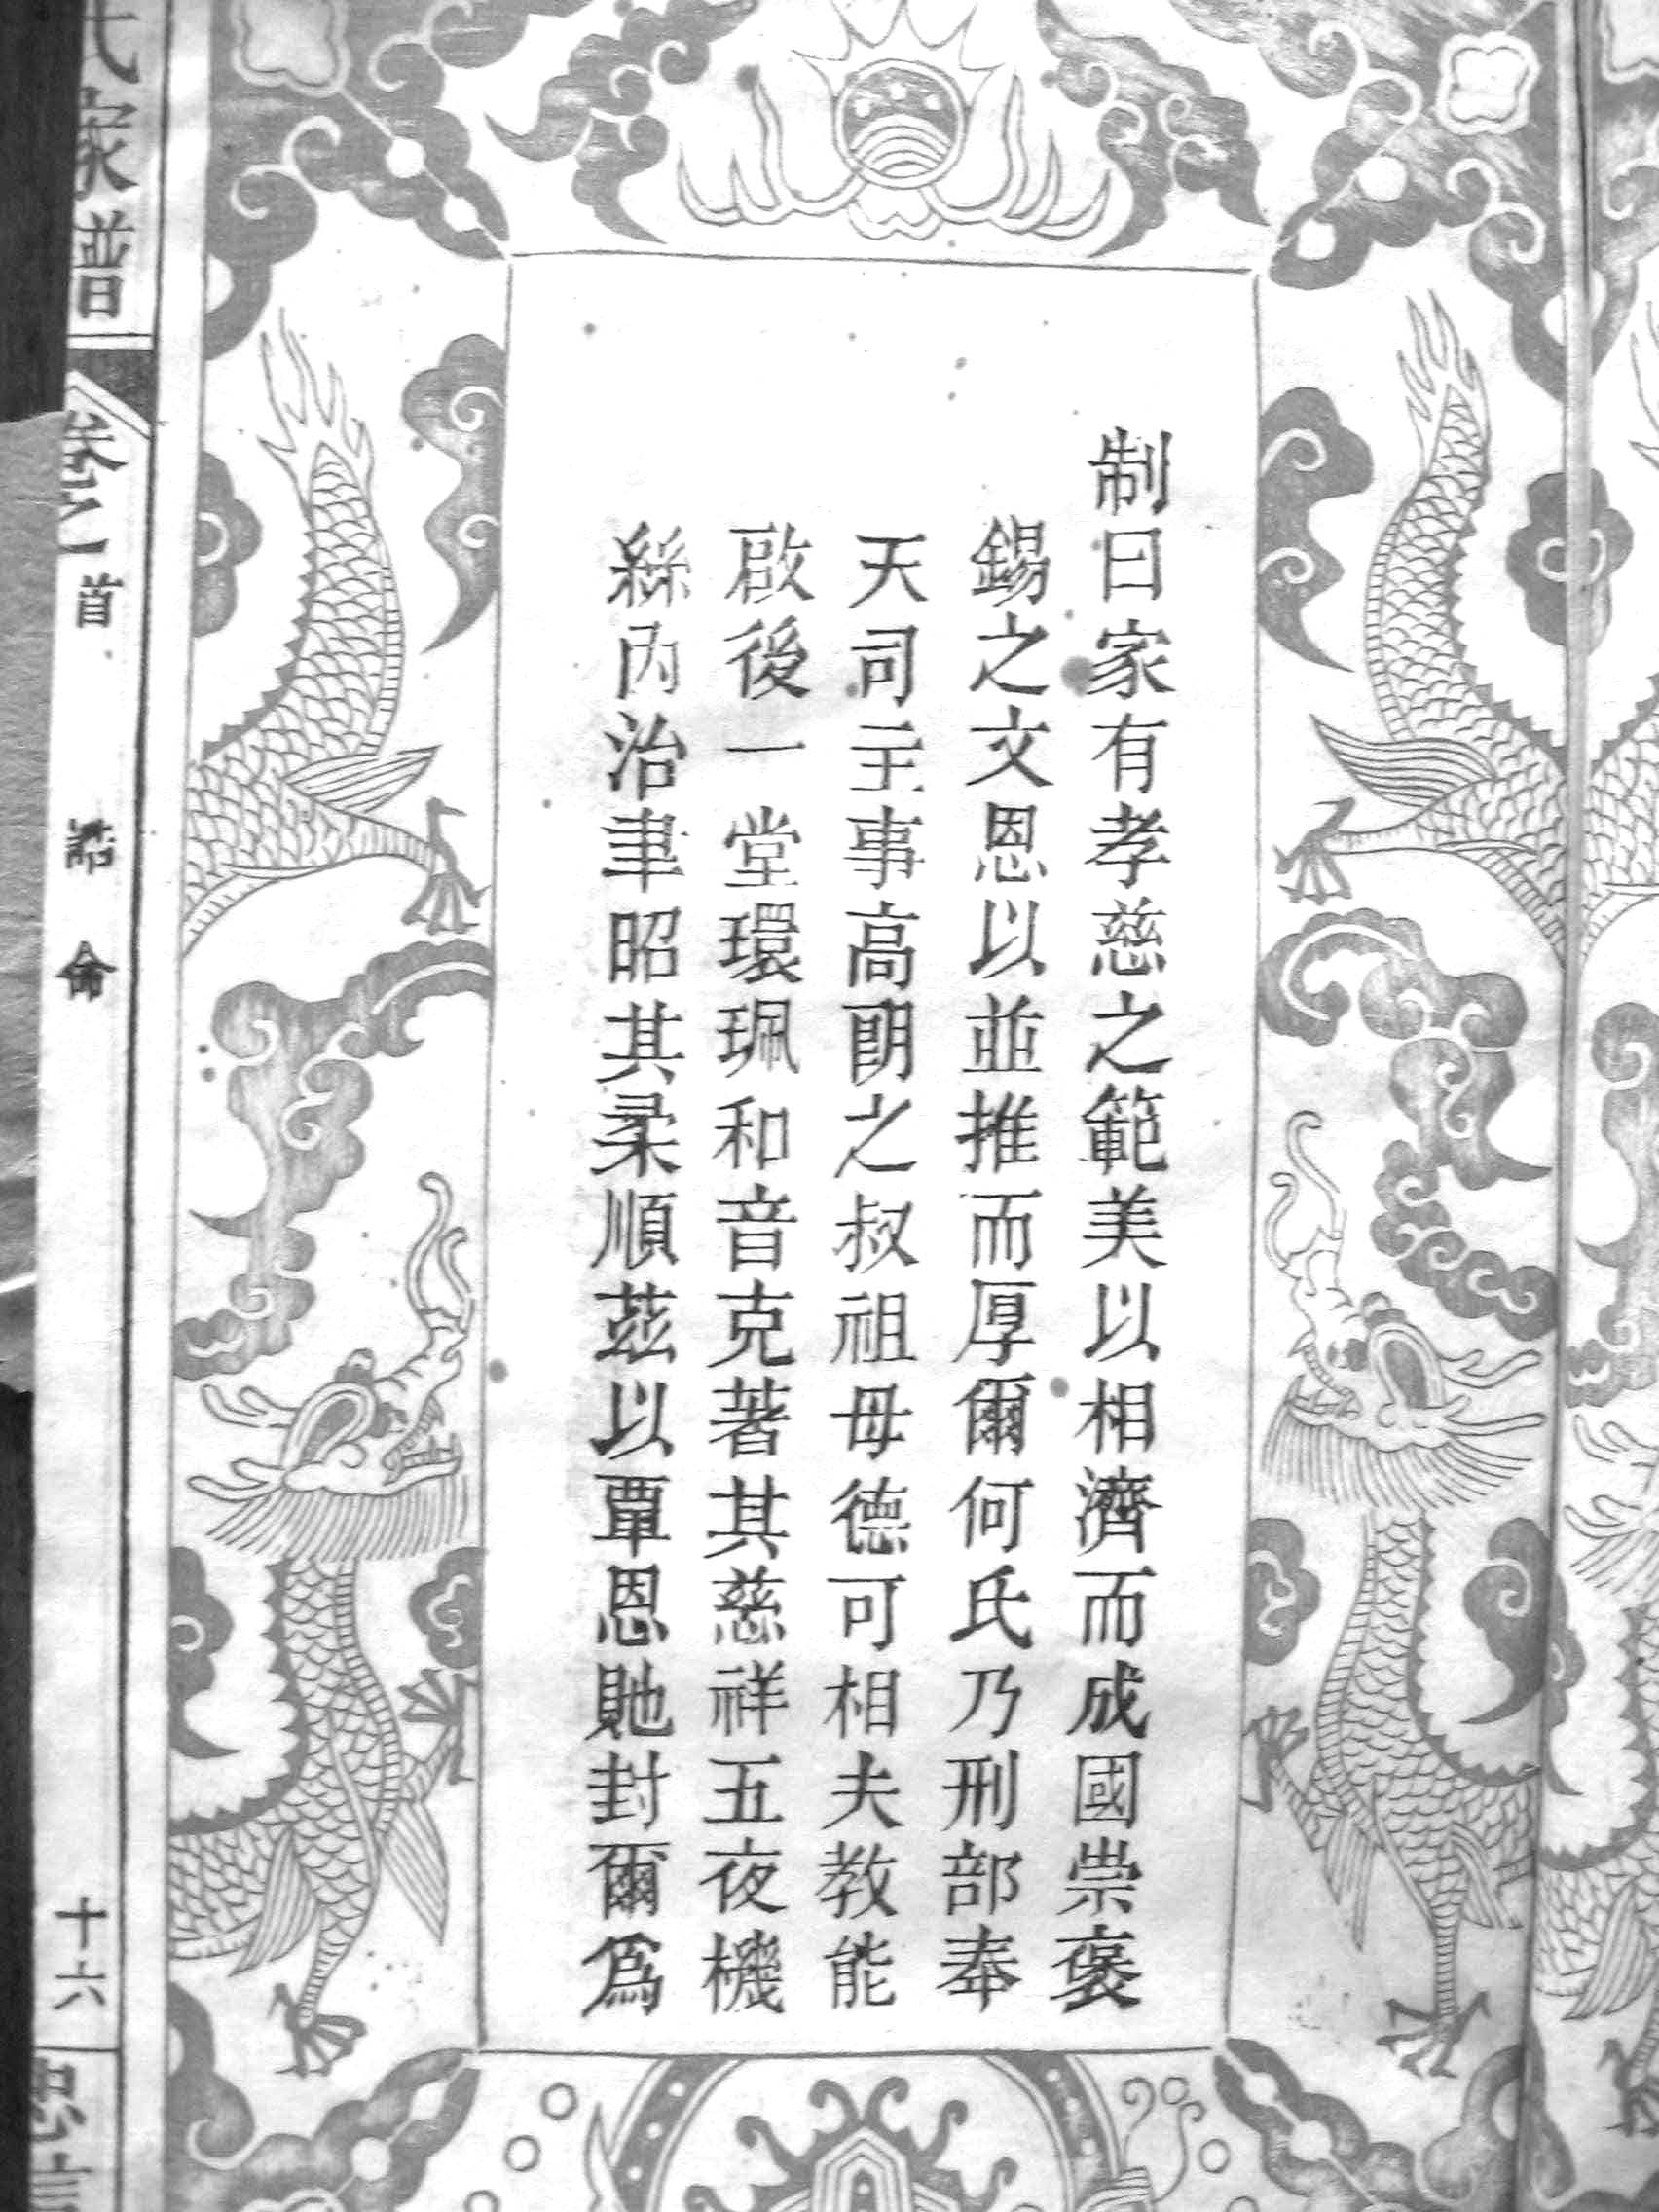 制曰家有孝慈之範美以相濟而成國崇褒
錫之文恩以並推而厚爾何氏乃刑部奉
天司主事高朗之叔祖母德可相夫教能
啟後一堂環珮和音克著其慈祥五夜機
絲內治聿昭其柔順茲以覃恩貤封爾爲
氏家譜
卷之首
誥命
十六